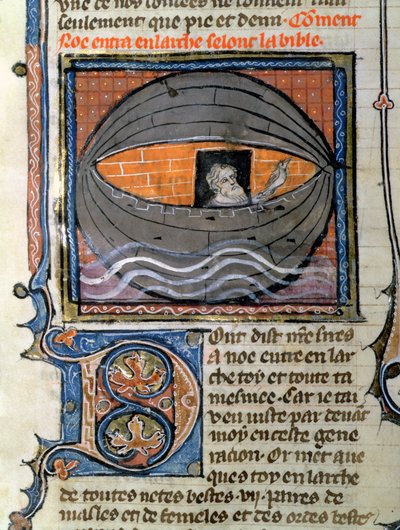 seulement que pie et demi. Coment
Noe entra en larche selont la bible.
Dont dist nostre sires
a noe entre en lar
che toy et toute ta
mesniee. Car ie tai
veu iuste par deuant
moy en ceste gene
racion. Or met aue
ques toy en larche
de toutes netes bestes. vij. paires de
masles et de femeles et des ordes bestes